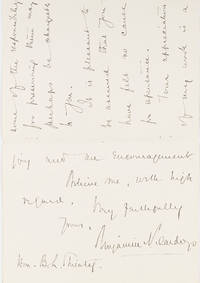 some of the responsibility
for preserving them may
perhaps be chargeable
to you.
It is pleasant to
be assured that you
have felt no cause
for repentance.
Your appreciation
of my work is a
joy and an encouragement
Believe me, with high
regard,
Very faithfully
Yours,
Benjamin N. Cardozo
Hon.